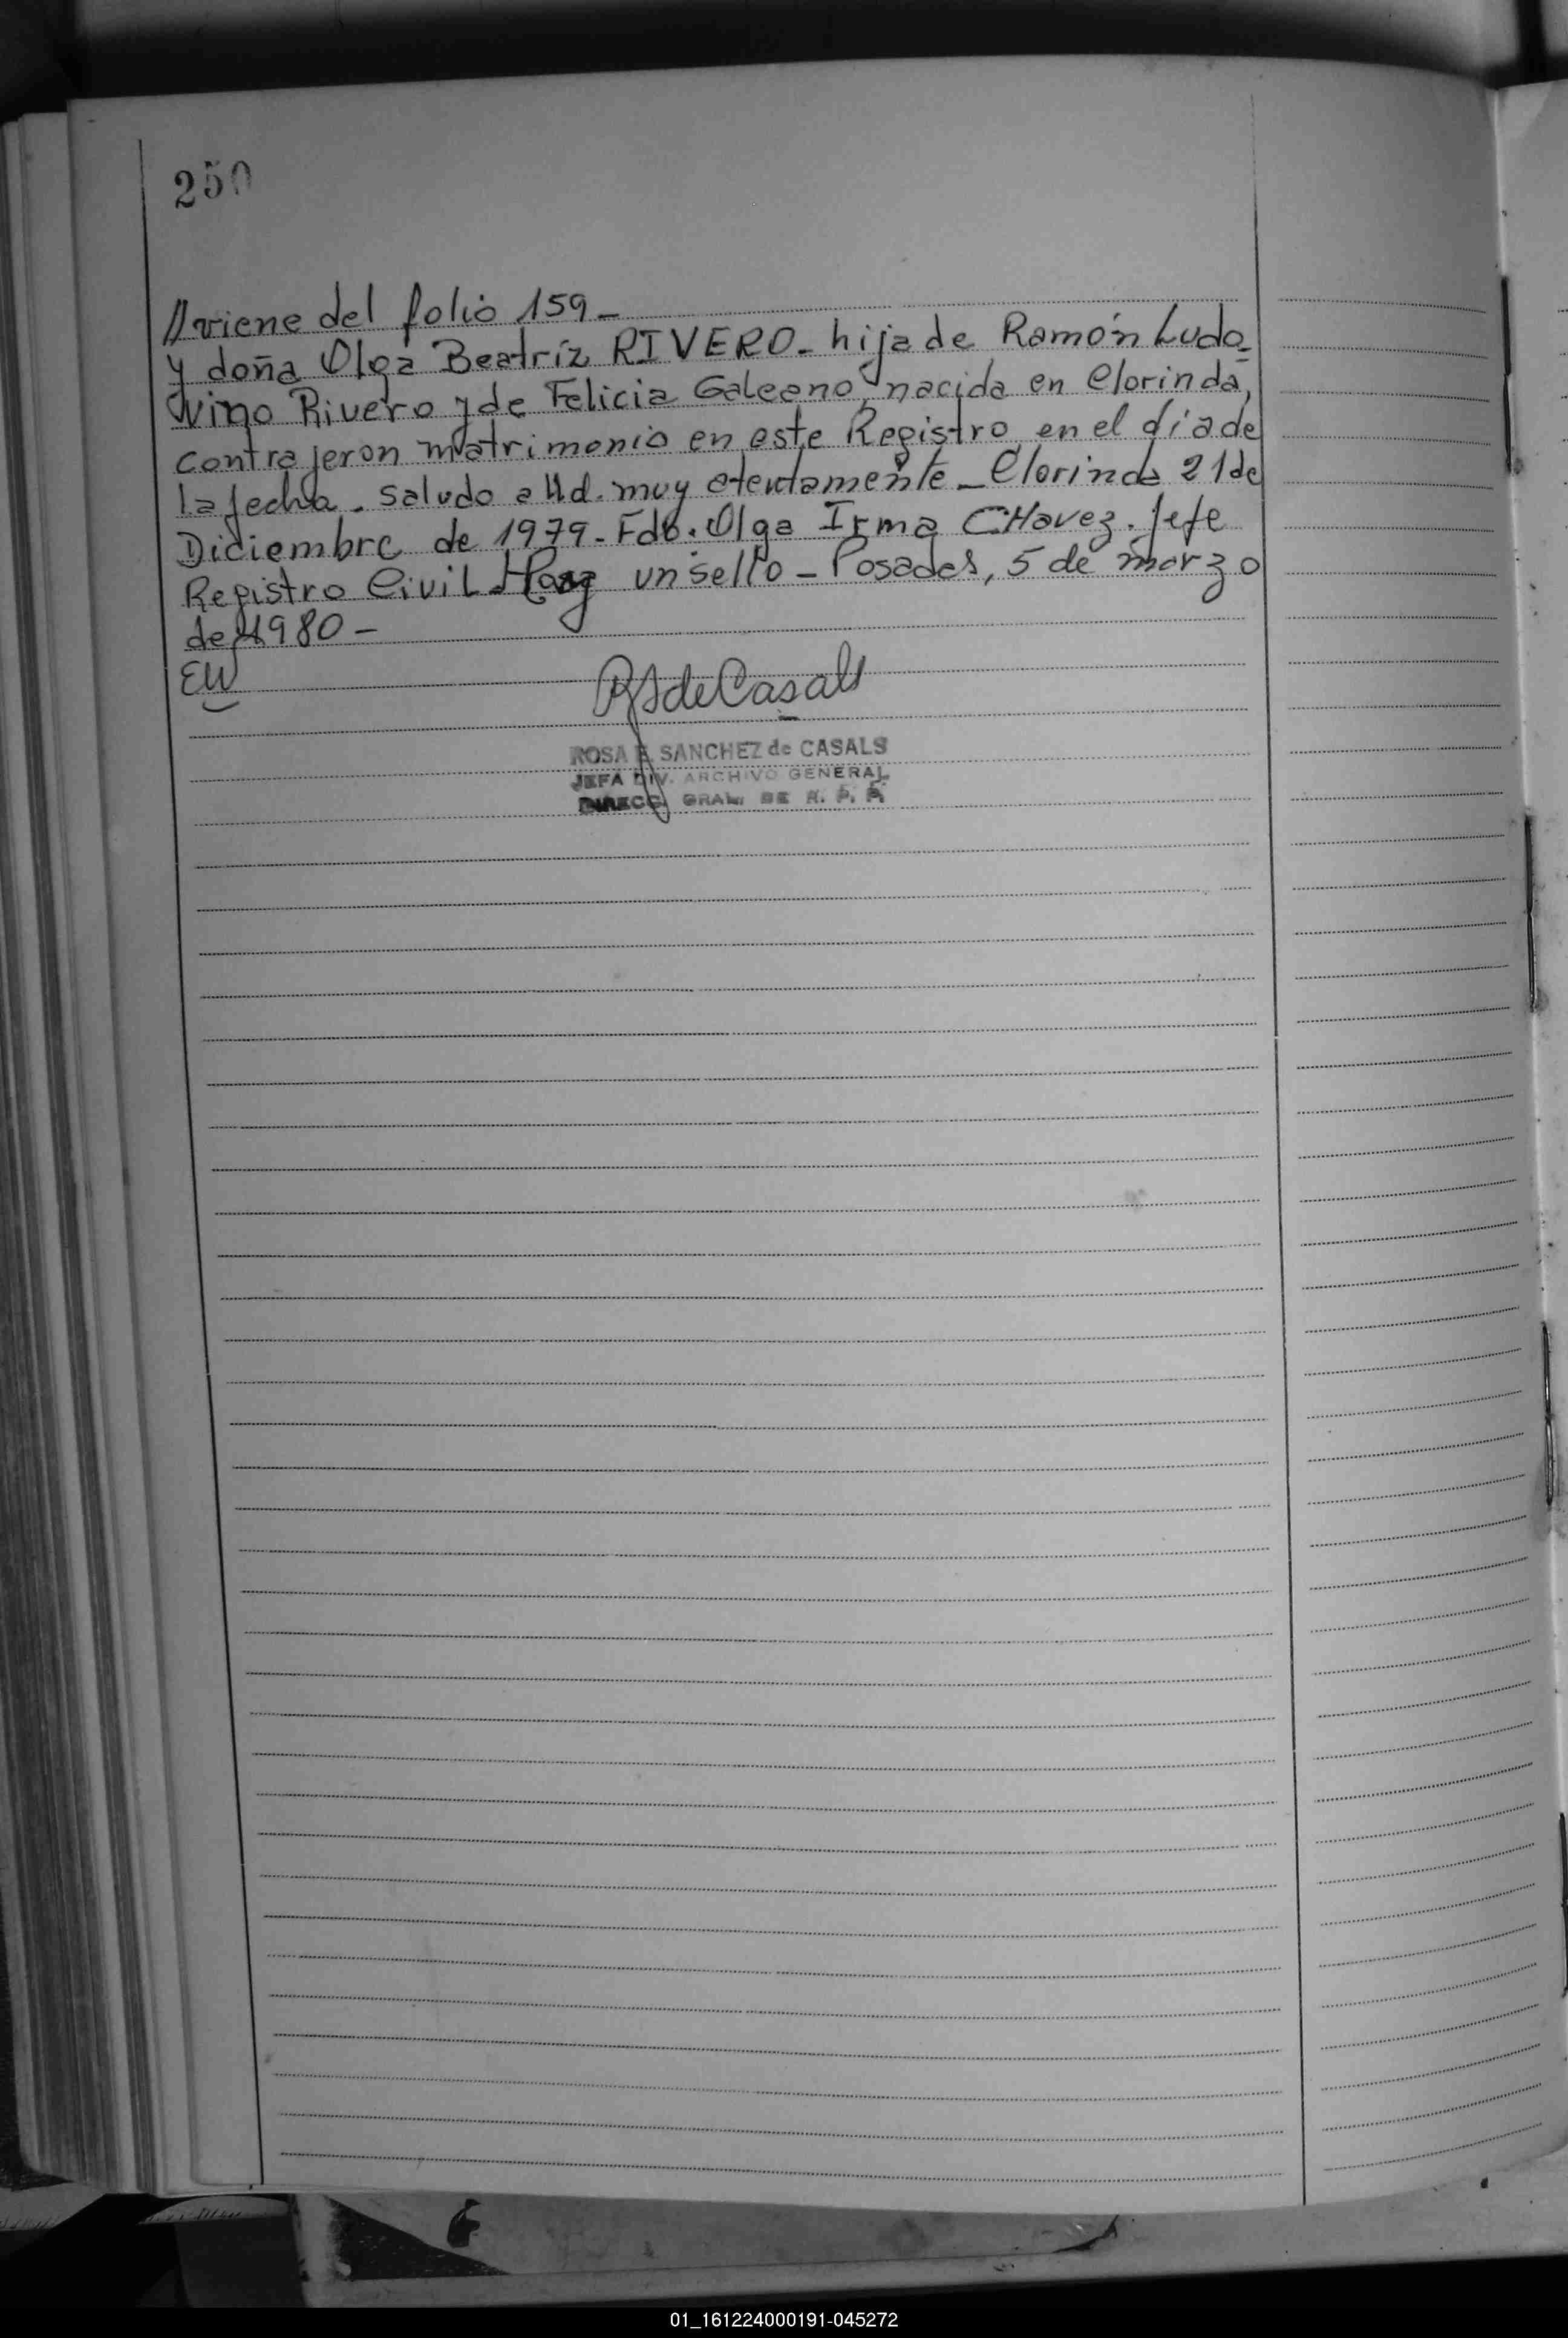 250
//viene del folio 159-
y doña Olga Beatríz RIVERO- hija de Ramón Ludo-
vino Rivero y de Felicia Galeano, nacida en Clorinda,
contrajeron matrimonio en este Registro en el día de
la fecha. saludo a Ud. muy atentamente - Clorinda 21 de
Diciembre de 1979- Fdo. Olga Irma CHavez. Jefe
Registro Civil - Hay un sello - Posadas, 5 de marzo
de 1980 -
EW
RSdeCasals
ROSA E. SANCHEZ de CASALS
JEFA DIV. ARCHIVO GENERAL
DIRECC. GRAL. DE R. P. P.
01_161224000191-045272